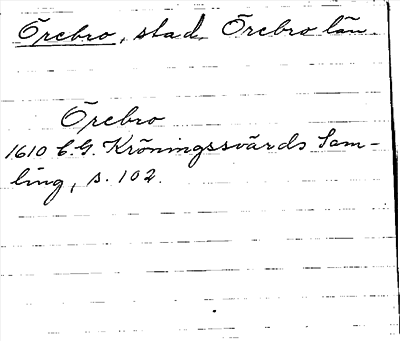 Örebro, stad, Örebro län.
Örebro
1610 C.G. Kröningssvärds Sam-
ling, s. 102.